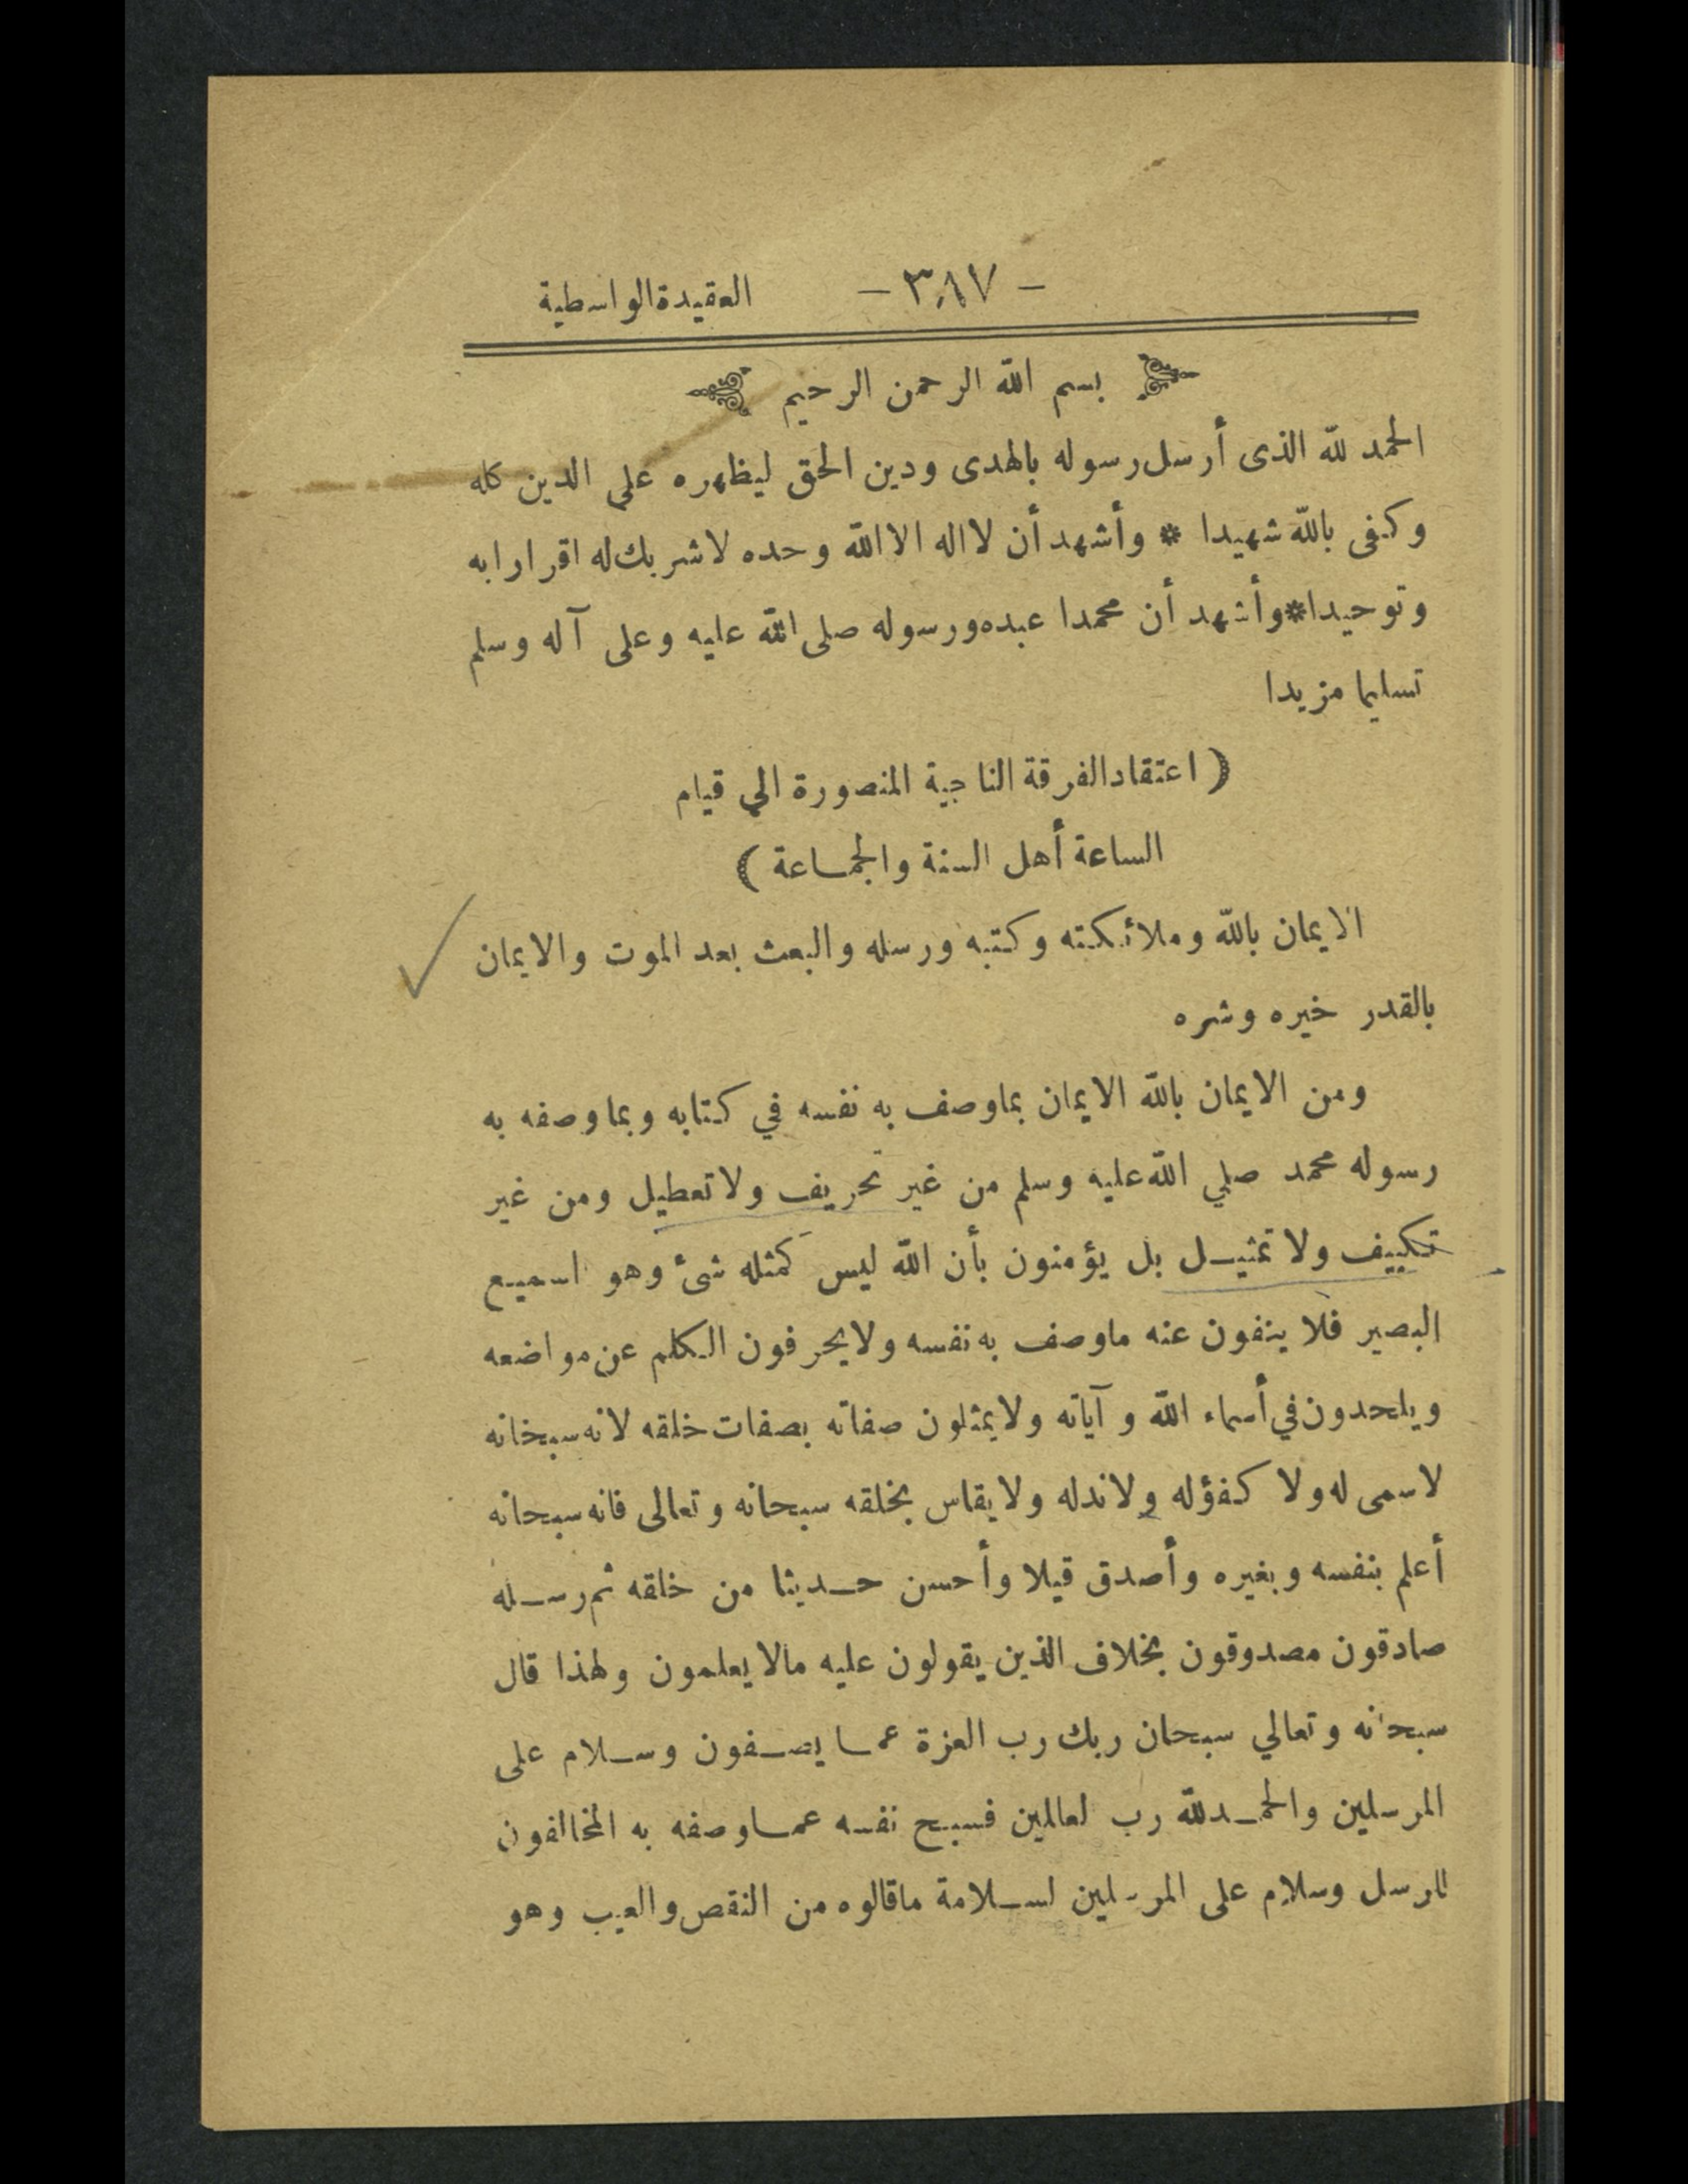 - ٣٨٧ - العقيدة الواسطية
بسم الله الرحمن الرحيم
الحمد لله الذى أرسل رسوله بالهدى ودين الحق ليظهره على الدين كله
وكفى بالله شهيدا * وأشهد أن لا اله الا الله وحده لا شريك له اقرارا به
وتوحيدا * وأشهد أن محمدا عبده ورسوله صلى الله عليه وعلى آله وسلم
تسليما مزيدا
( اعتقاد الفرقة الناجية المنصورة الي قيام
الساعة أهل السنة والجماعة )
الايمان بالله وملائكته وكتبه ورسله والبعث بعد الموت والايمان
بالقدر خيره وشره
ومن الايمان بالله الايمان بما وصف به نفسه في كتابه وبما وصفه به
رسوله محمد صلي الله عليه وسلم من غير تحريف ولا تعطيل ومن غير
تكييف ولا تمثيل بل يؤمنون بأن الله ليس كمثله شئ وهو السميع
البصير فلا ينفون عنه ما وصف به نفسه ولا يحرفون الكلم عن مواضعه
ويلحدون في أسماء الله وآياته ولا يمثلون صفاته بصفات خلقه لانه سبحانه
لا سمى له ولا كفؤ له ولا ند له ولا يقاس بخلقه سبحانه وتعالى فانه سبحانه
أعلم بنفسه وبغيره وأصدق قيلا وأحسن حديثا من خلقه ثم رسله
صادقون مصدوقون بخلاف الذين يقولون عليه مالا يعلمون ولهذا قال
سبحانه وتعالي سبحان ربك رب العزة عما يصفون وسلام على
المرسلين والحمد لله رب لعالمين فسبح نفسه عما وصفه به المخالفون
للرسل وسلام على المرسلين لسلامة ما قالوه من النقص والعيب وهو